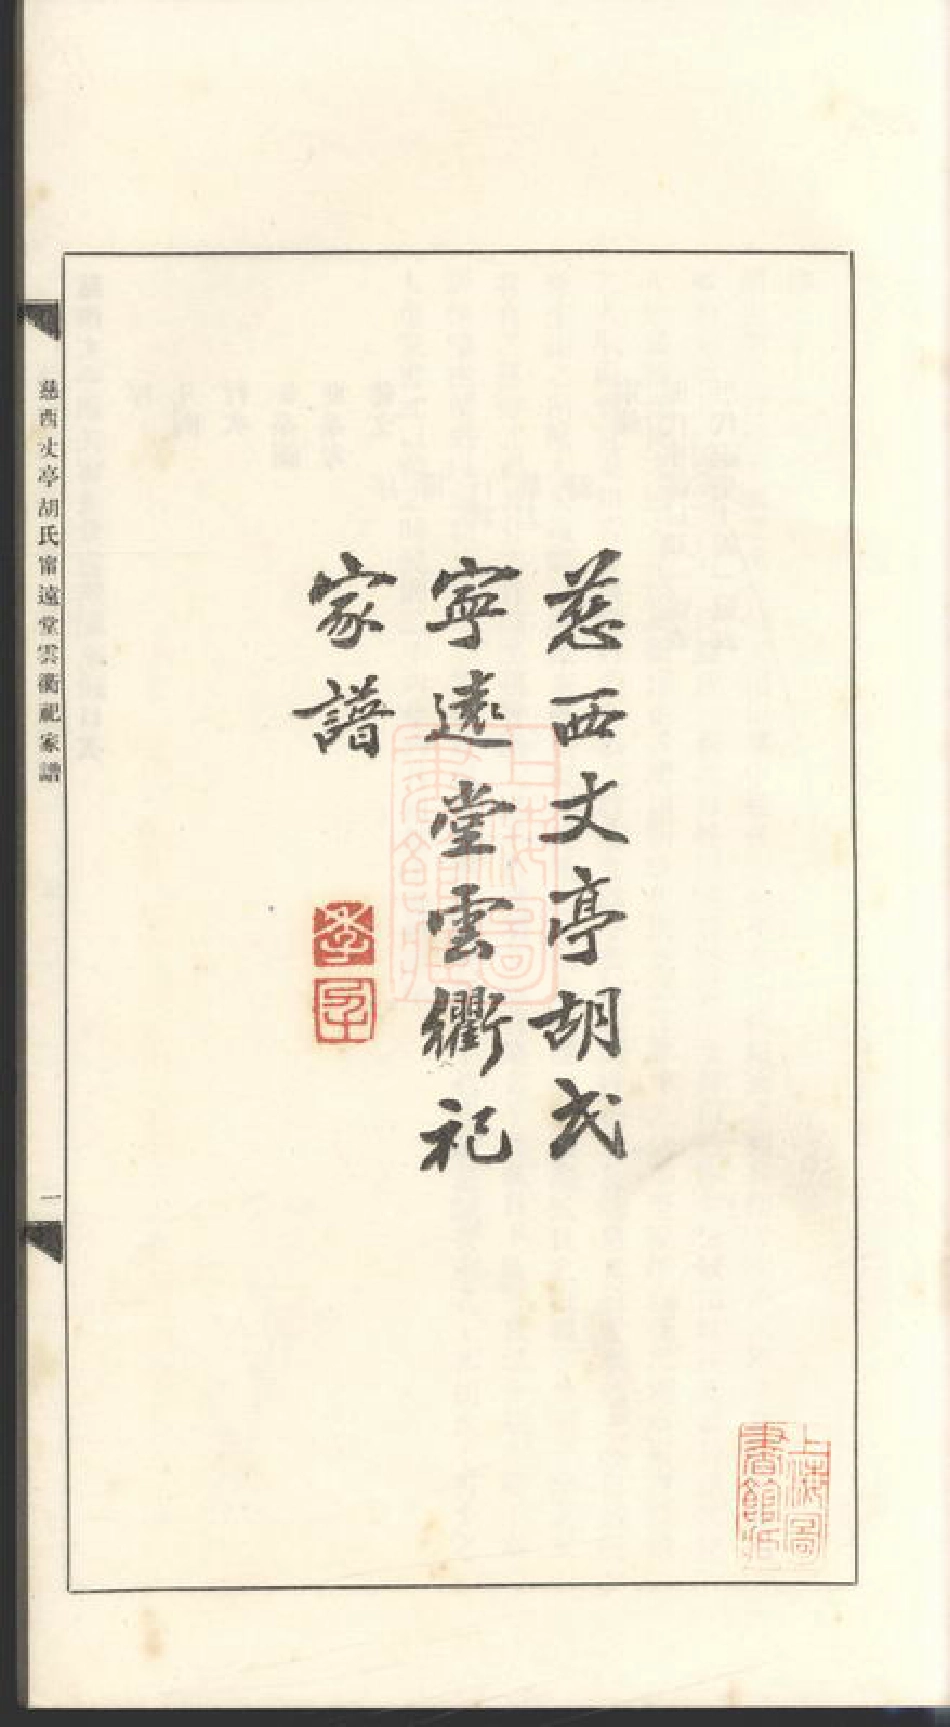 慈西丈亭胡氏
寧遠堂雲衢祀
家譜
慈西丈亭胡氏甯遠堂雲衢祀家譜
一
上海圖書館藏
上海圖書館藏